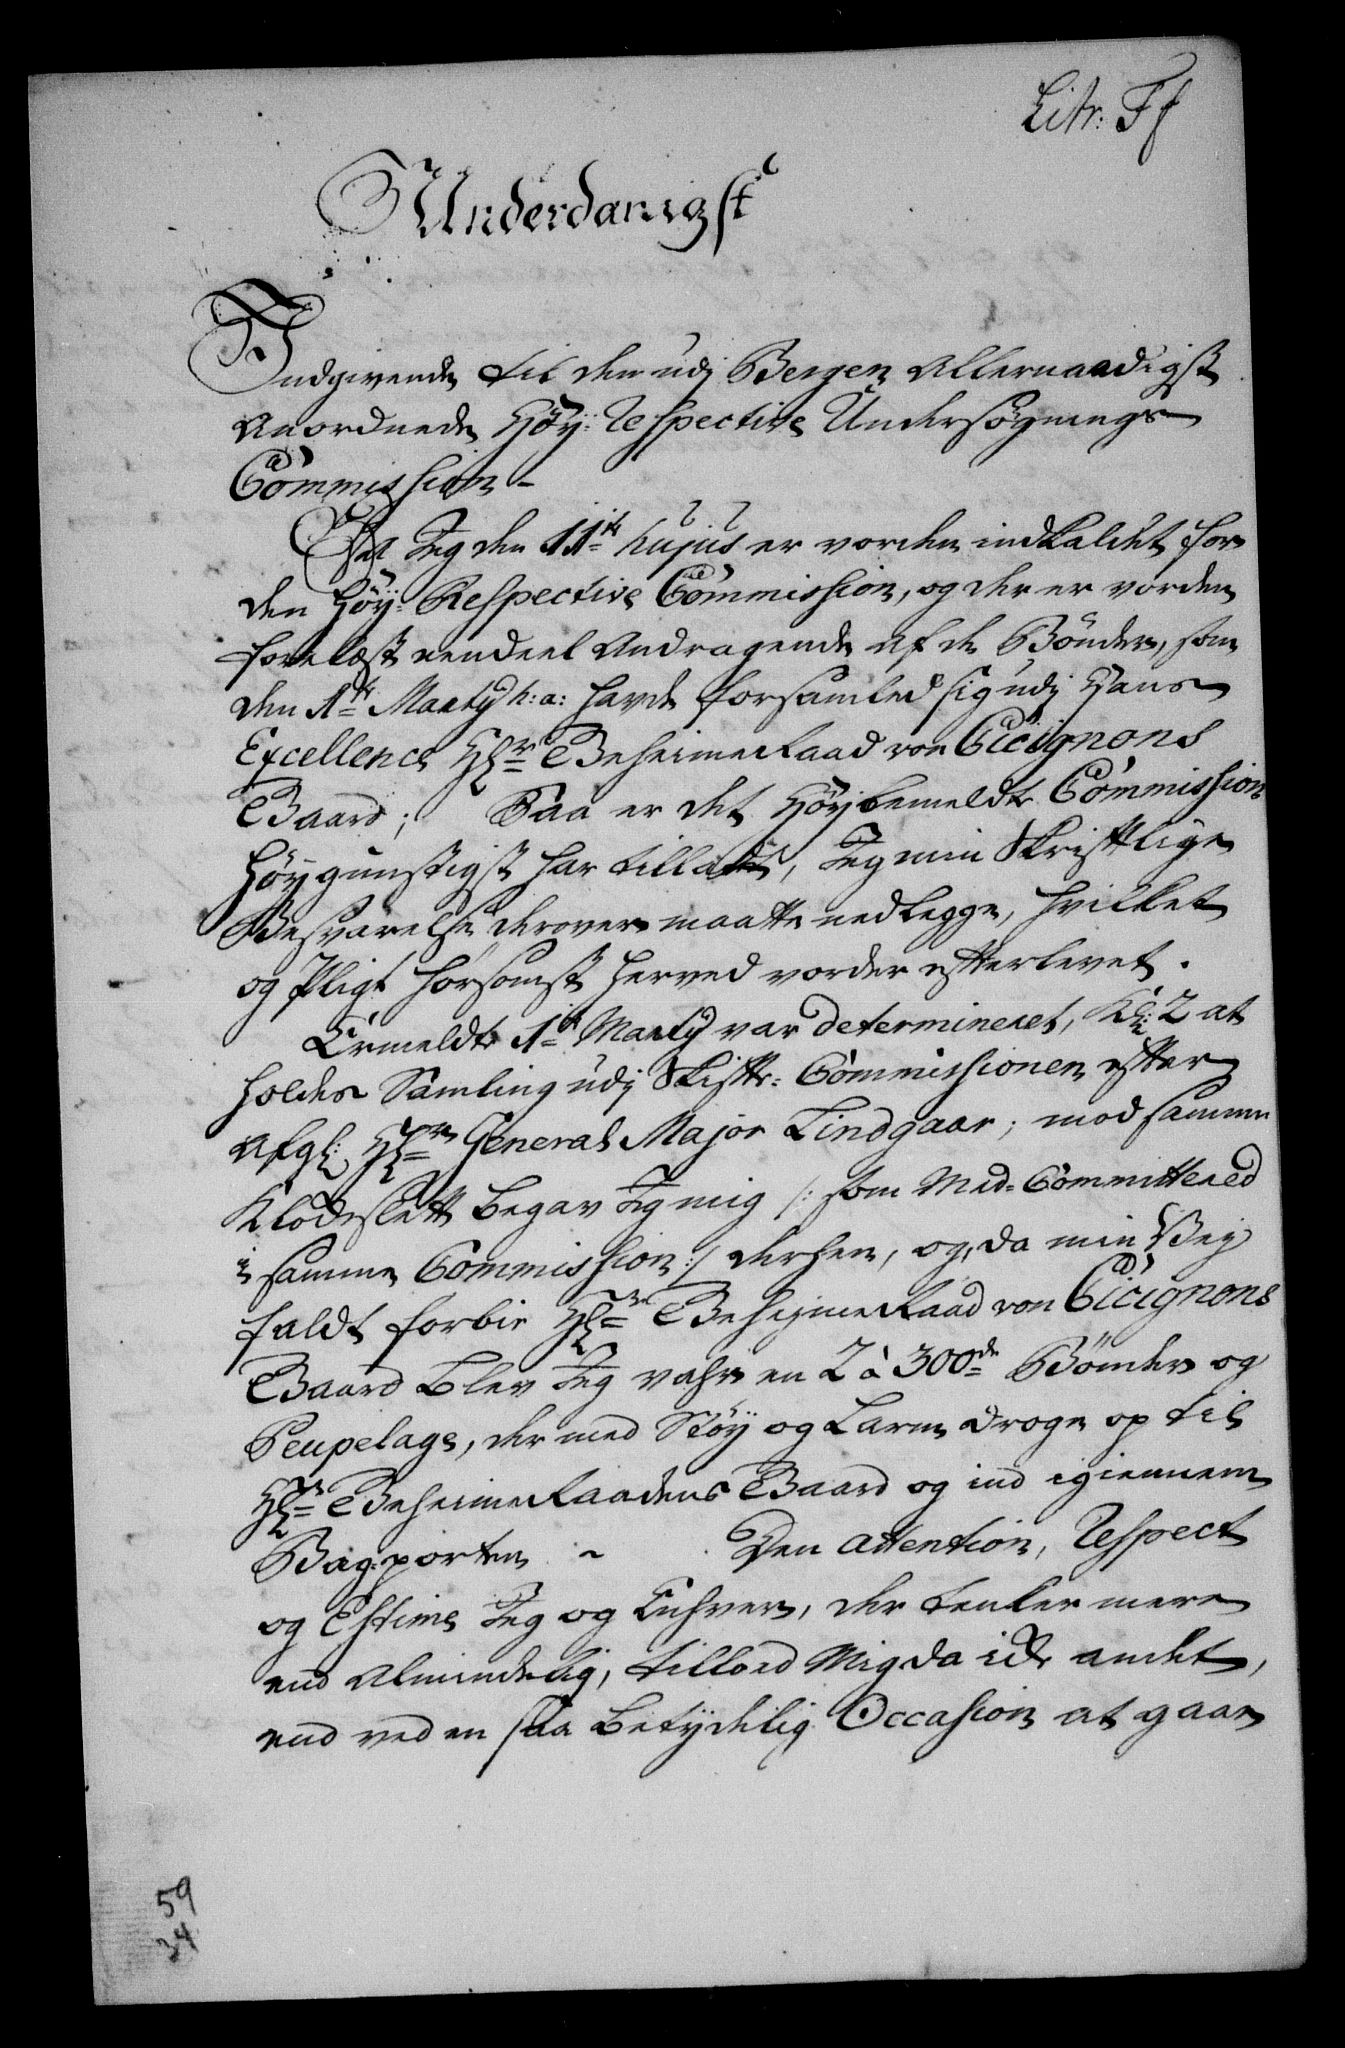 Litr: Ff
Underdanigst
Indgivende til den udj Bergen Allernaadigst
Anordnede Höy: Respective Undersögnings
Commission –
At Jeg den 11te hujus er vorden indkaldet for
den Höy: Respective Commission, og der er vorden
forelæst eendeel Andragende af de Bönder, som
den 1te Martÿ h: a: havde forsamled sig udj Hans
Excellence Hr Geheime Raad von Cicignons
Gaard; Saa er det Höybemeldte Commission
Höygunstigst har tilladt, Jeg min Skriftlige
Besværelse derover maatte nedlegge, hvilket
og Pligt hörsomst herved vorder efterlevet.
Ermeldte 1te Martÿ var determineret, Kl: 2 at
holdes Samling udj Skifte- Commissionen efter
Afgl: Hr General Major Lindgaar; mod samme
Klokeslett begav Jeg mig /: som Med-Committered
i samme Commission :/ derhen, og, da min Vej
faldt forbie Hr Geheime Raad von Cicignons
Gaard blev Jeg vahr en 2 à 300de Bönder og
Peupelage, der med Stöy og Larm droge op til
Hr Geheime Raadens Gaard og ind igiennem
Bag-porten ~ Den attention, Respect
og Estime Jeg og Enhver, der tenker mere
end Almindelig, tillod Mig da icke andet,
end ved en saa betydelig Occasion at gaae
59
34